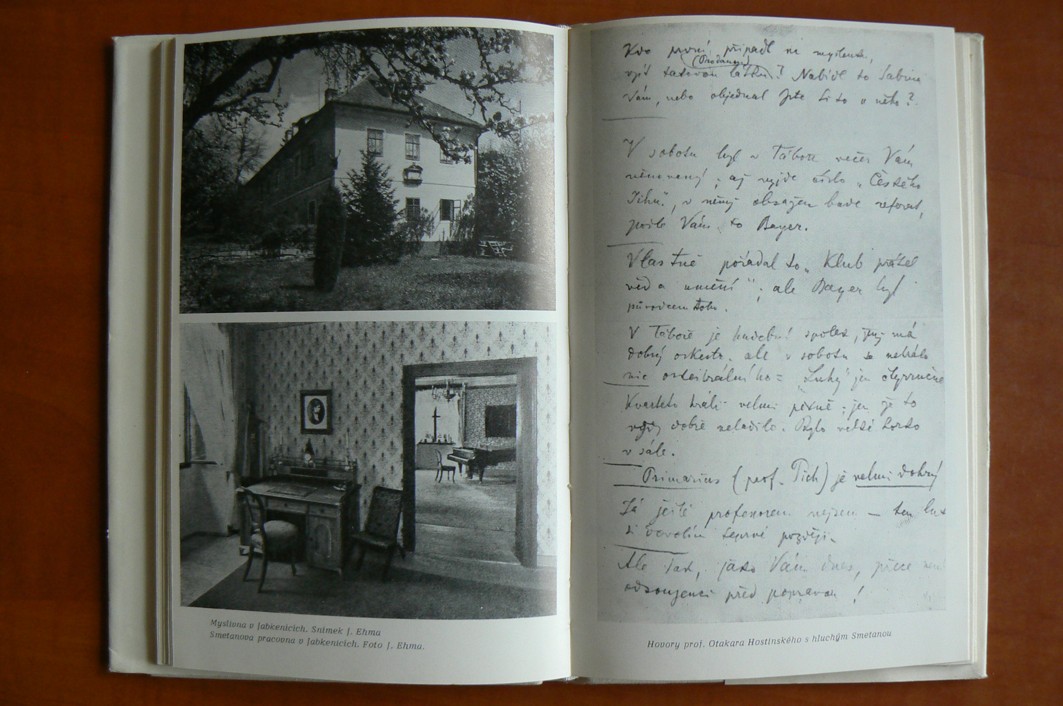 Myslivna v Jabkenicích. Snímek J. Ehma
Smetanova pracovna v Jabkenicích. Foto J. Ehma.
Kdo první připadl na myšlenku,
vzít takovou látku? Nabídl to Sabina
Vám, nebo objednal jste si to u něho?
V sobotu byl v Táboře večer Vám
věnovaný; až vyjde číslo „Českého
Jihu", v němž obsažen bude referát,
pošle Vám to Bayer.
Vlastně pořádal to „Klub přátel
věd a umění"; ale Bayer byl
původcem toho.
V Táboře je hudební spolek, jenž má
dobrý orkestr. ale v sobotu se nehrálo
nic orkestrálního = „Luhy" jen čtyřručně
Kvarteto hráli velmi pěkně; jen že to
vždy dobře neladilo. Bylo velké horko
v sále.
Primarius (prof. Pich) je velmi dobrý
Já ještě profesorem nejsem — ten
si teprvé později.
Ale tak, jako Vám dnes, přece
odsouzenci před popravou!
Hovory prof. Otakara Hostinského s hluchým Smetanou.